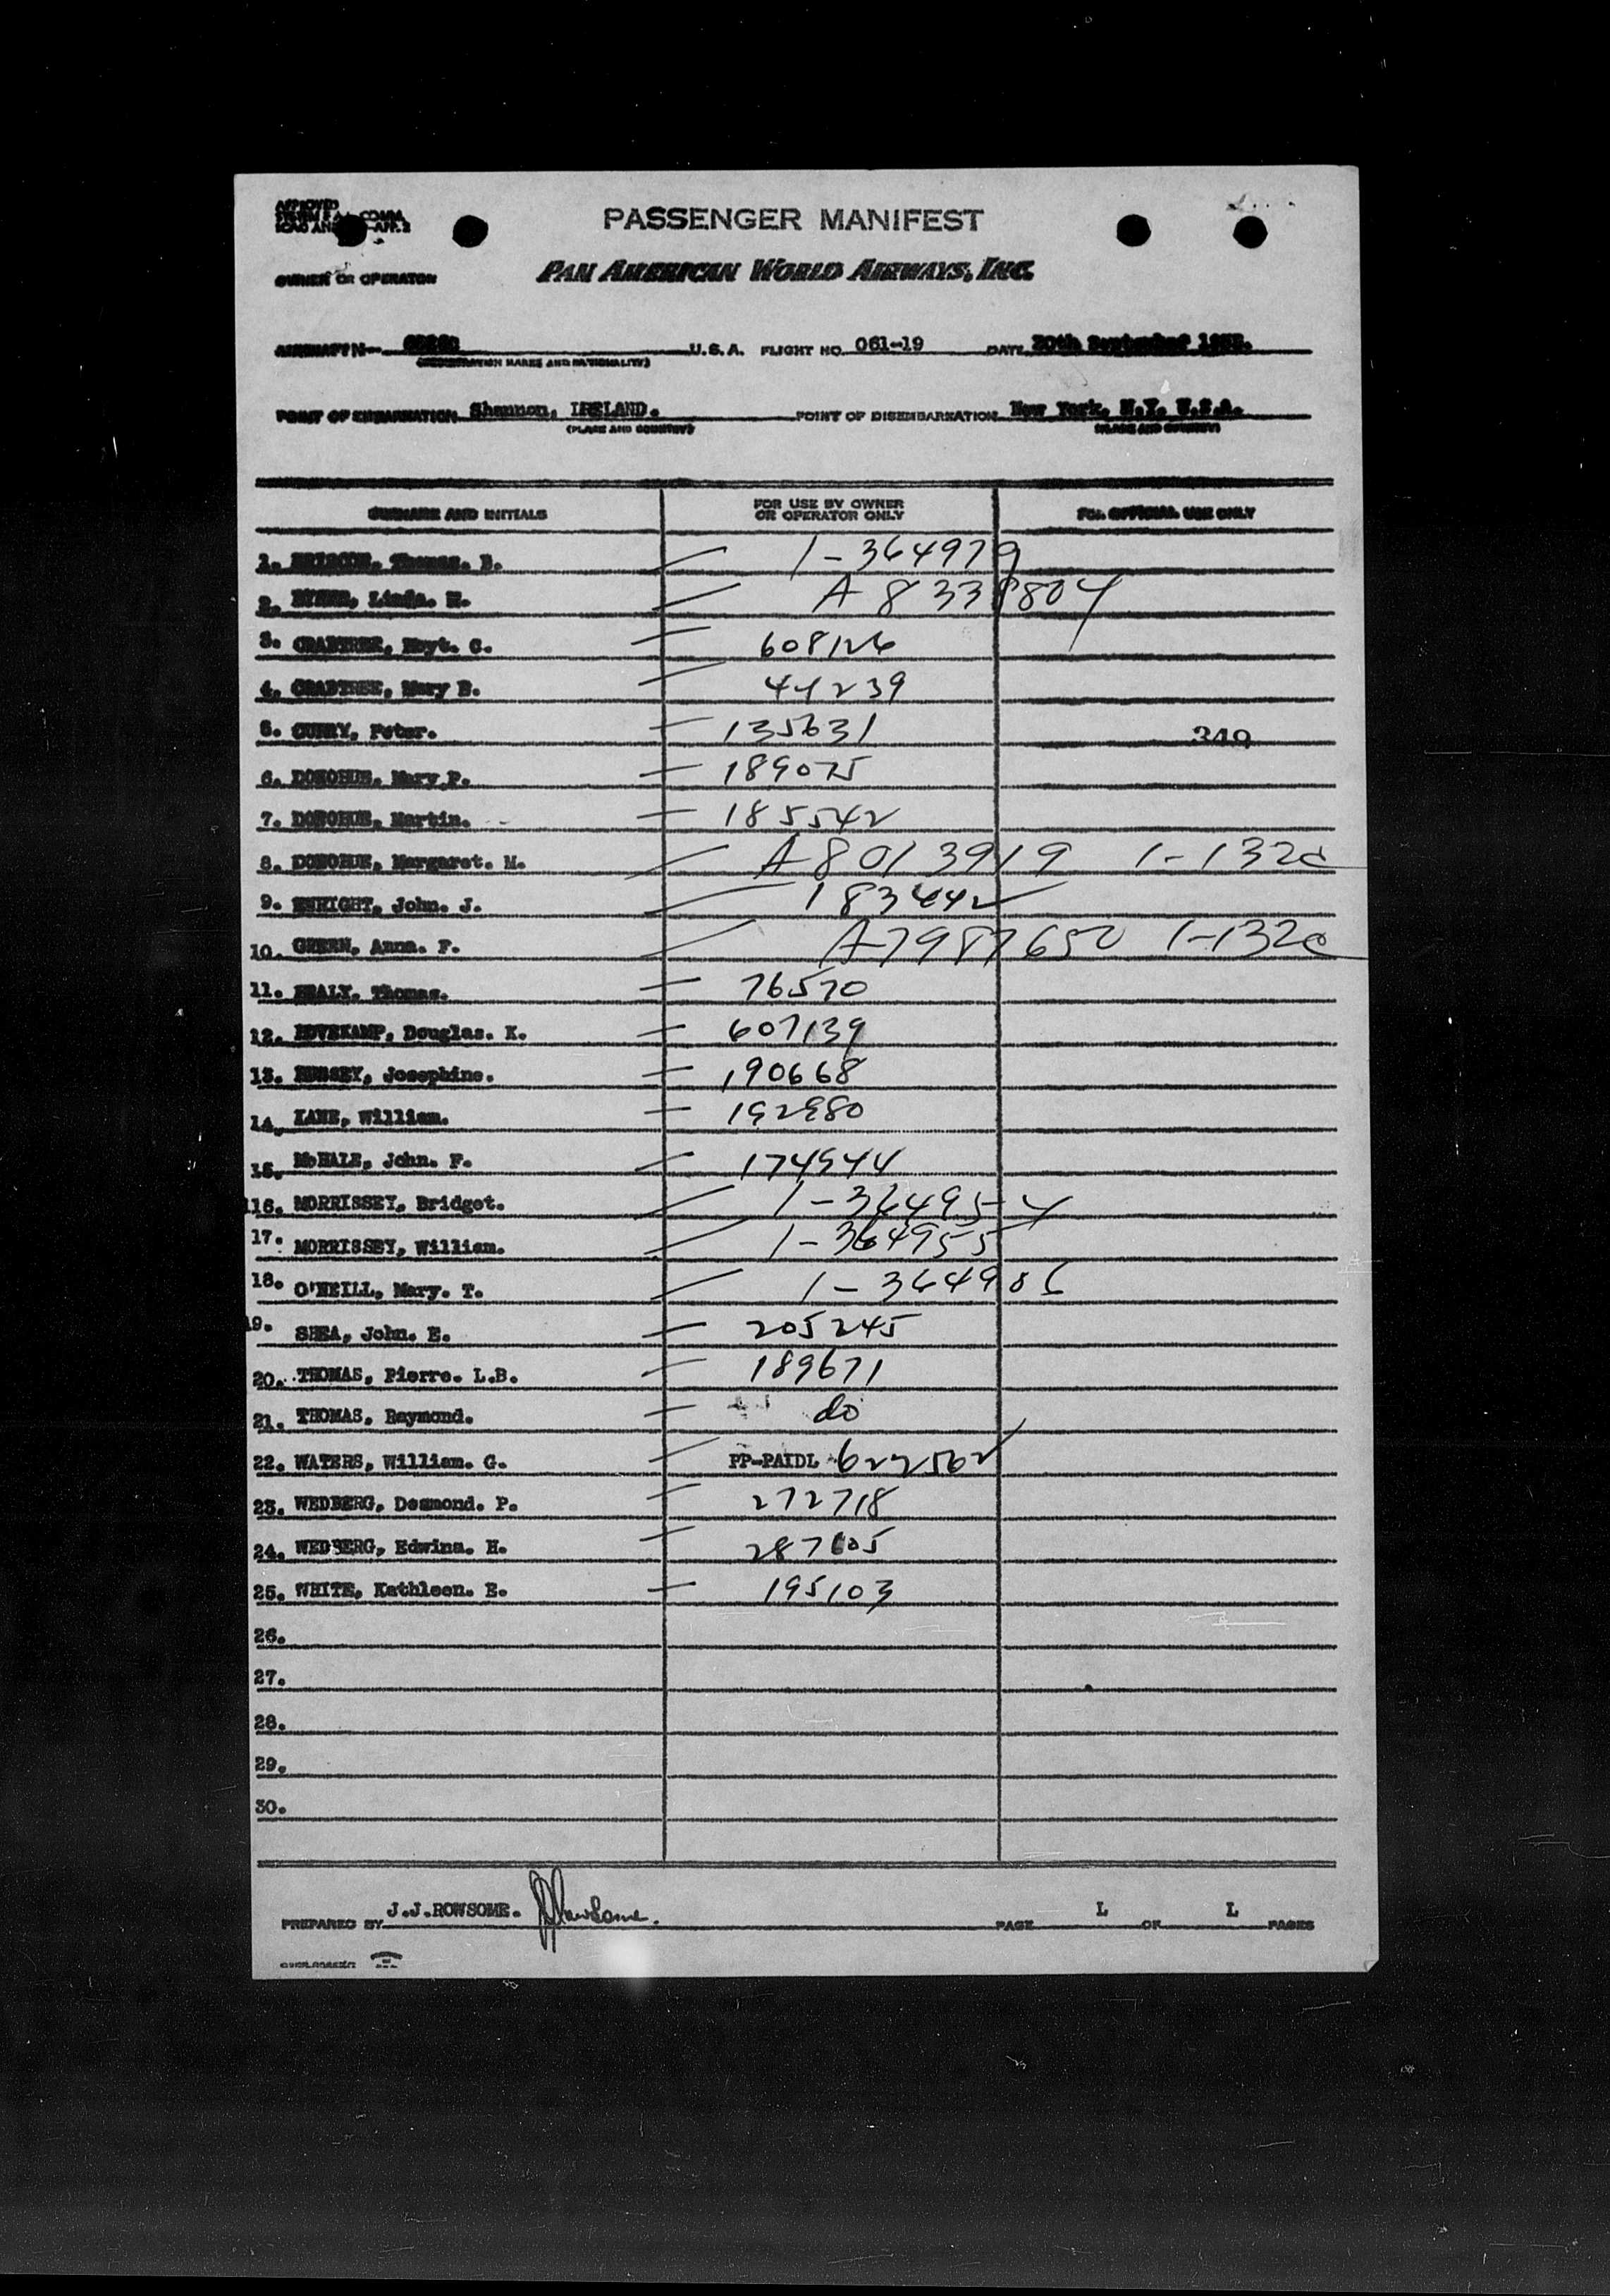 APPROVED
PASSENGER MANIFEST
OWNER OR OPERATOR
PAN AMERICAN WORLD AIRWAYS, INC.
AIRCRAFT N- U.S.A. FLIGHT NO. 061-19 DATE 20th September
(REGISTRATION MARKS AND NATIONALITY)
POINT OF EMBARKATION Shannon, IRELAND. POINT OF DISEMBARKATION New York. N.Y. U.S.A.
(PLACE AND COUNTRY) (PLACE AND COUNTRY)
SURNAME AND INITIALS FOR USE BY OWNER OR OPERATOR ONLY FOR OFFICIAL USE ONLY
1. Thomas. B. 1-364979
2. Linda. A 8338804
3. CRABTREE, Hoyt. C. 608126
4. CRABTREE, Mary B. 44239
5. CURRY, Peter. 135631 349
6. DONOHUE, Mary P. 189075
7. DONOHUE, Martin. 185542
8. DONOHUE, Margaret. M. A 8013919 1-132c
9. ENRIGHT, John. J. 183442
10. GREEN, Anna. F. A7987650 1-132c
11. HEALY, Thomas. 76570
12. HOVEKAMP, Douglas. K. 607139
13. Josephine. 190668
14. KANE, William. 192980
15. McHALE, John. F. 174944
16. MORRISSEY, Bridget. 1-364954
17. MORRISSEY, William. 1-364955
18. O'NEILL, Mary. T. 1-364986
19. SHEA, John. E. 205245
20. THOMAS, Pierre. L.B. 189671
21. THOMAS, Raymond. do
22. WATERS, William. G. PP-PAIDL 622562
23. WEDBERG, Desmond. P. 272718
24. WEDBERG, Edwina. H. 287605
25. WHITE, Kathleen. E. 195103
26.
27.
28.
29.
30.
PREPARED BY J.J.ROWSOME. JJRowsome. PAGE L OF L PAGES